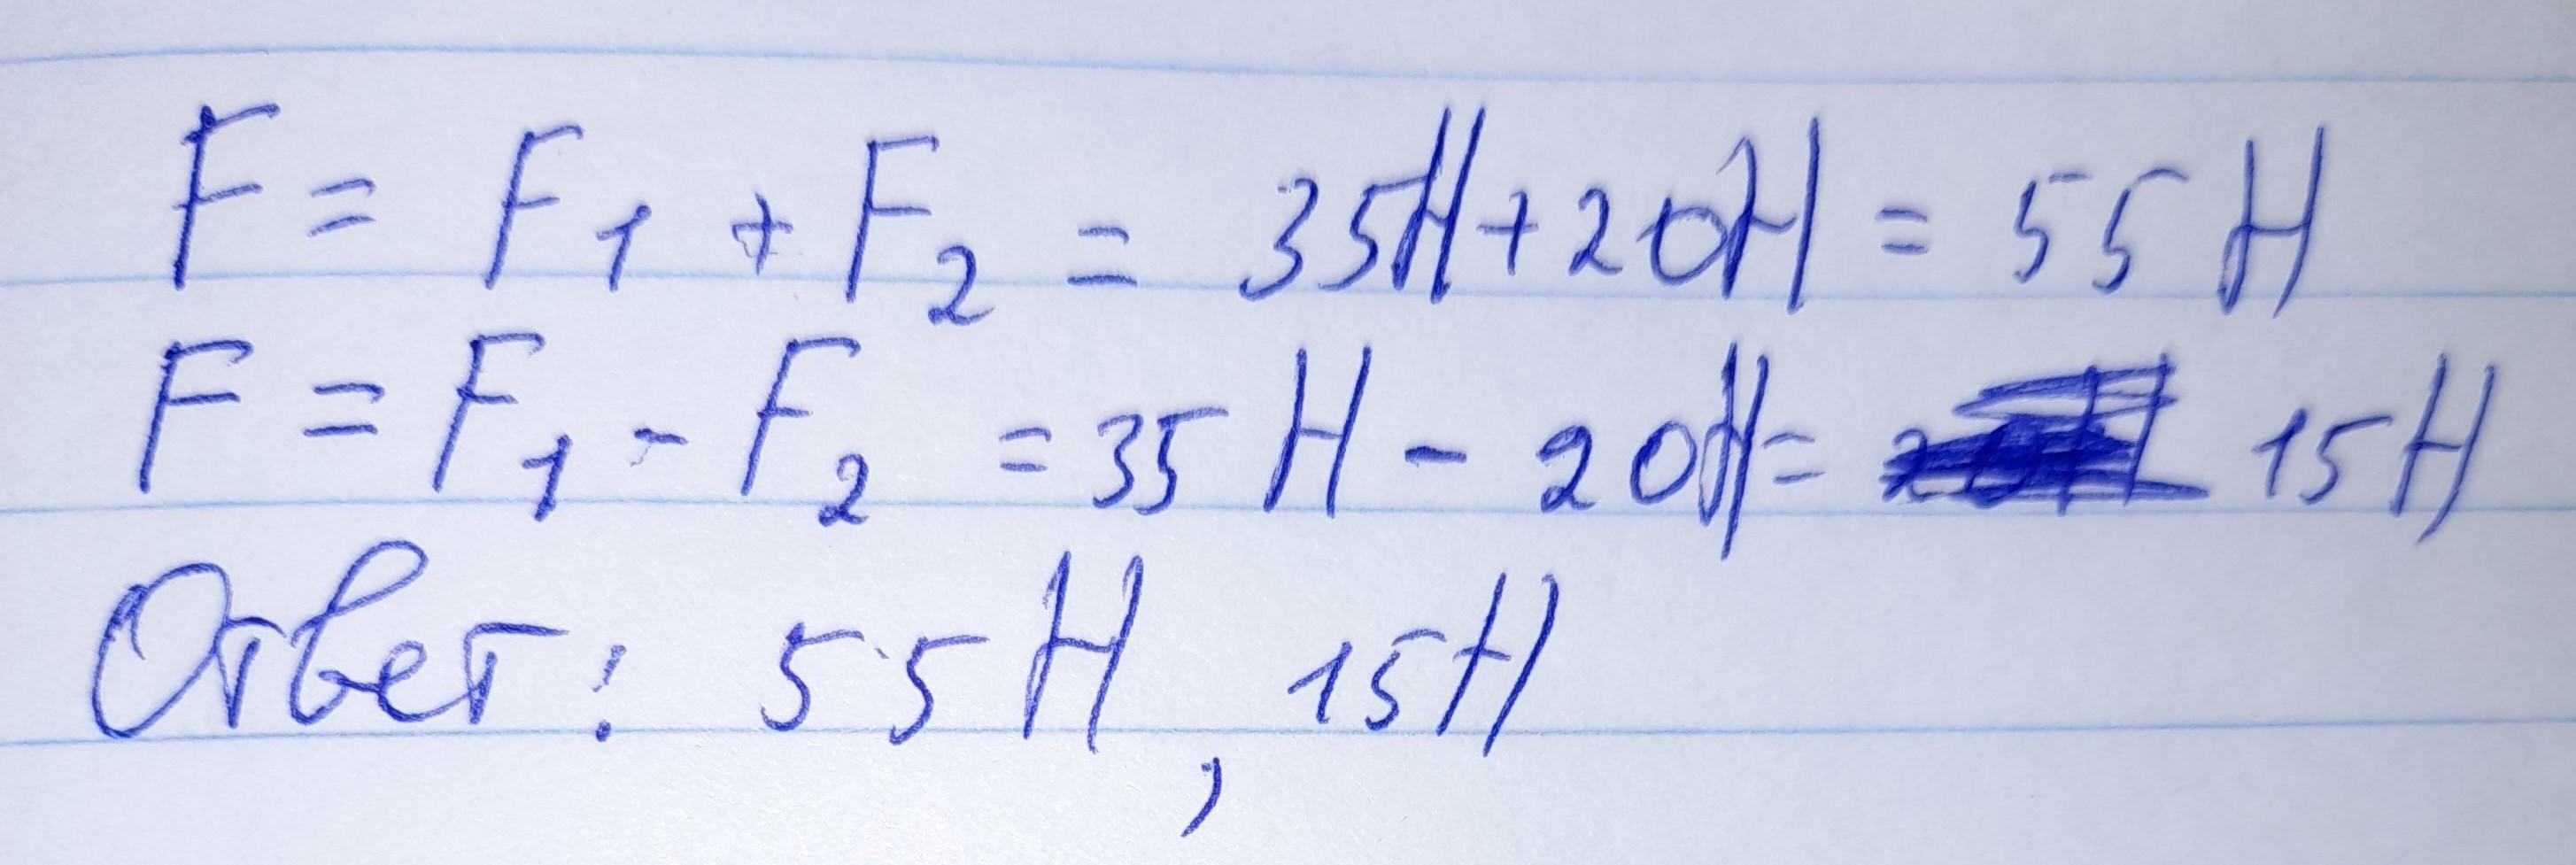 F = F₁ + F₂ = 35Н + 20Н = 55 Н
F = F₁ - F₂ = 35 Н - 20Н = 15Н
Ответ: 55Н, 15Н